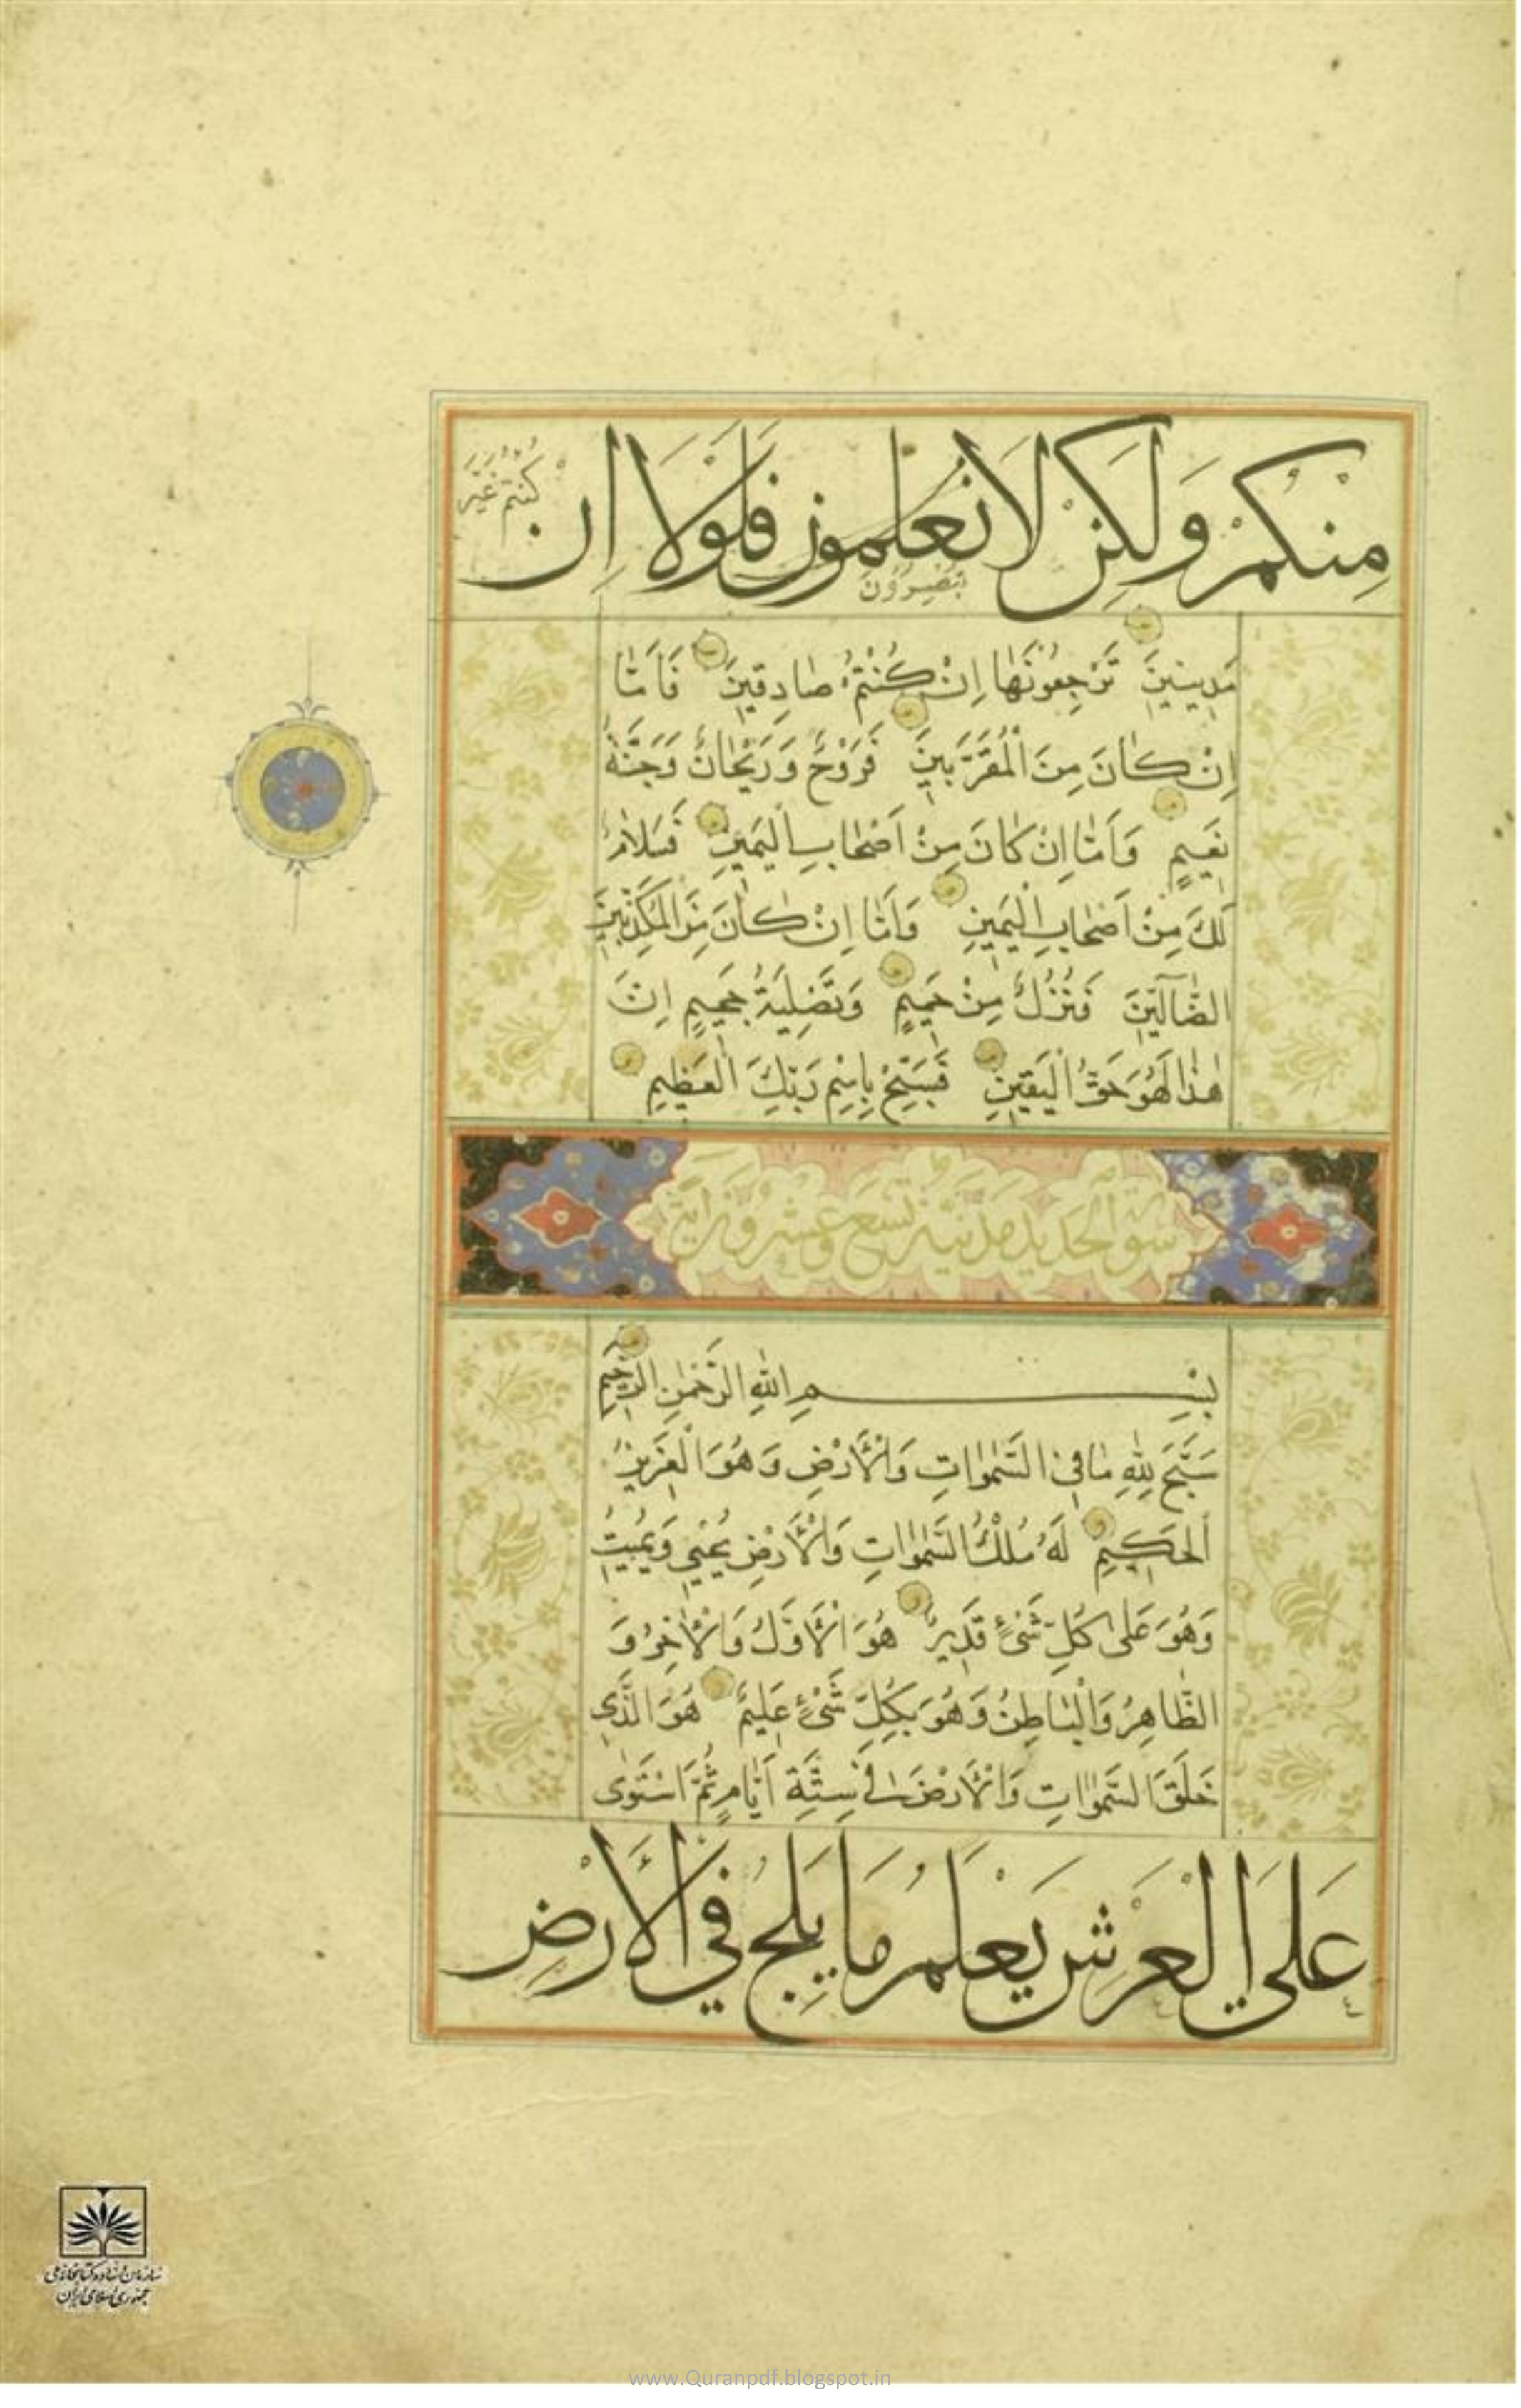 مِنْكُمْ وَلَكِنْ لَا تعلمون فَلَوْلَا اِن كُنتُم غَيْرَ
تبصِرُونَ
مَدِينِينَ تَرْجِعُونَهَا اِنْ كُنْتُمْ صَادِقِينَ فَاَمَّا
اِنْ كَانَ مِنَ الْمُقَرَّبِينَ فَرَوْحٌ وَرَيْحَانٌ وَجَنَّةُ
نَعِيمٍ وَاَمَّا اِنْ كَانَ مِنْ اَصْحَابِ الْيَمِينِ فَسَلَامٌ
لَكَ مِنْ اَصْحَابِ الْيَمِينِ وَاَمَّا اِنْ كَانَ مِنَ الْمُكَذِّبِينَ
الضَّآلِّينَ فَنُزُلٌ مِنْ حَمِيمٍ وَتَصْلِيَةُ جَحِيمٍ اِنَّ
هٰذَا لَهُوَ حَقُّ الْيَقِينِ فَسَبِّحْ بِاسْمِ رَبِّكَ الْعَظِيمِ
سورة الحديد مدنية تسع وعشرون آية
بِسْمِ اللّٰهِ الرَّحْمٰنِ الرَّحِيمِ
سَبَّحَ لِلّٰهِ مَا فِي السَّمٰوَاتِ وَالْاَرْضِ وَهُوَ الْعَزِيزُ
الْحَكِيمُ لَهُ مُلْكُ السَّمٰوَاتِ وَالْاَرْضِ يُحْيِي وَيُمِيتُ
وَهُوَ عَلٰى كُلِّ شَيْءٍ قَدِيرٌ هُوَ الْاَوَّلُ وَالْاٰخِرُ وَ
الظَّاهِرُ وَالْبَاطِنُ وَهُوَ بِكُلِّ شَيْءٍ عَلِيمٌ هُوَ الَّذِي
خَلَقَ السَّمٰوَاتِ وَالْاَرْضَ فِي سِتَّةِ اَيَّامٍ ثُمَّ اسْتَوٰى
عَلَى الْعَرْشِ يَعْلَمُ مَا يَلِجُ فِي الْاَرْضِ
سازمان اسناد و کتابخانه ملی
جمهوری اسلامی ایران
www.Quranpdf.blogspot.in